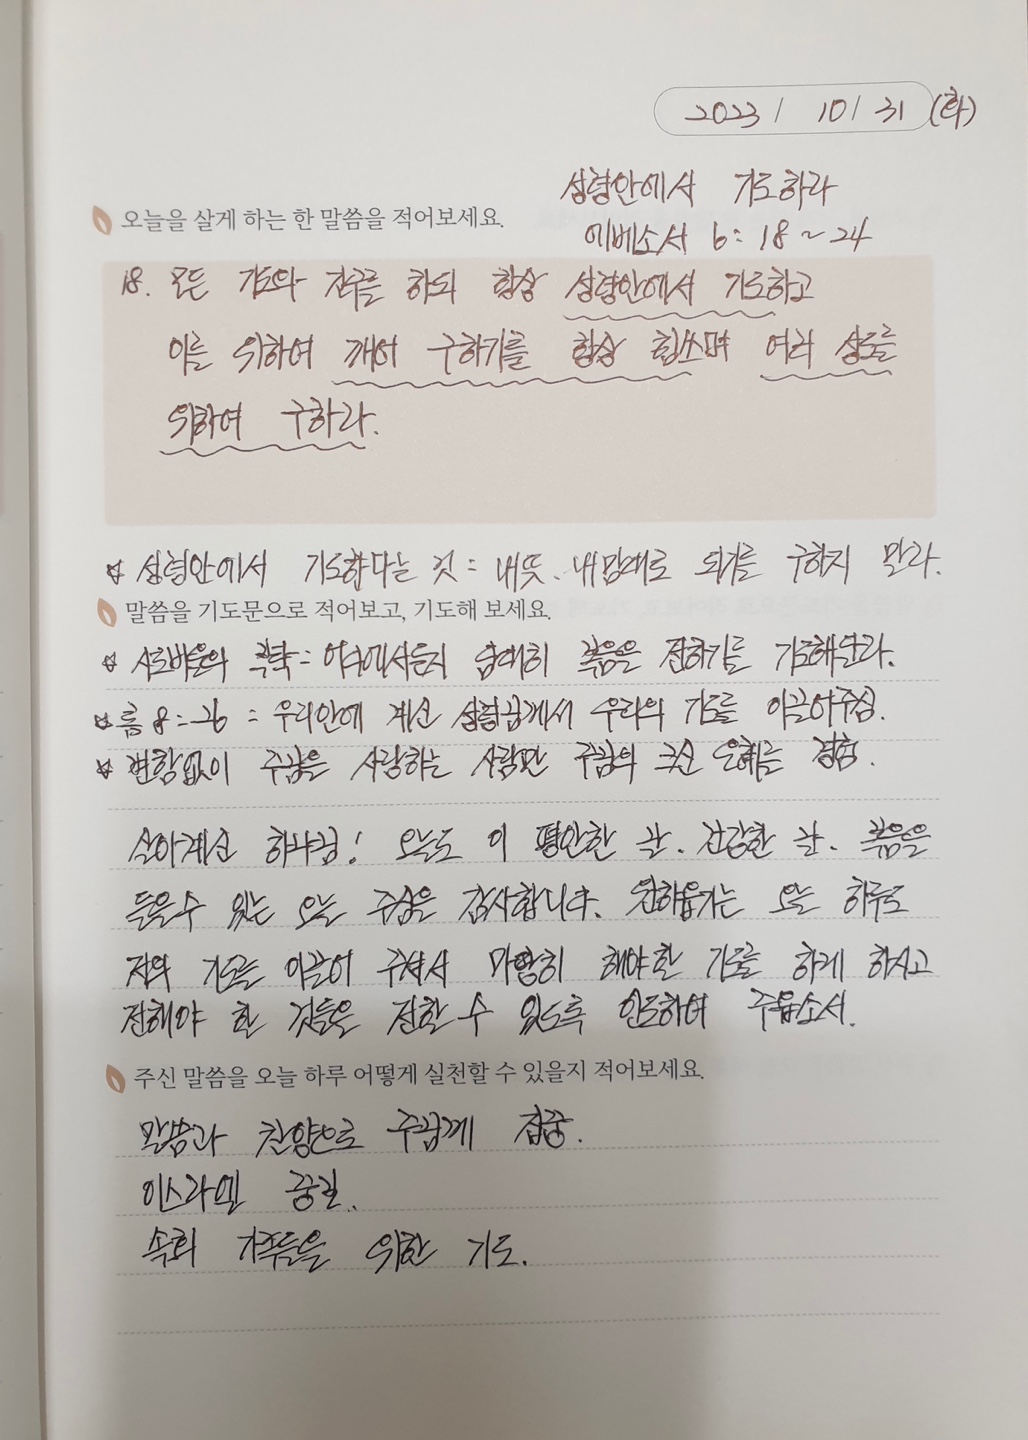 2023 / 10 / 31 (화)
성령안에서 기도하라
오늘을 살게 하는 한 말씀을 적어보세요.
에베소서 6:18~24
18. 모든 기도와 간구를 하되 항상 성령안에서 기도하고
이를 위하여 깨어 구하기를 항상 힘쓰며 여러 성도를
위하여 구하라.
☆ 성령안에서 기도한다는 것 = 내뜻. 내맘대로 되기를 구하지 말라.
말씀을 기도문으로 적어보고, 기도해 보세요.
☆ 사도바울의 부탁 = 어디에서든지 담대히 복음을 전하기를 기도해달라.
☆ 롬 8:26 = 우리안에 계신 성령님께서 우리의 기도를 이끌어주심.
☆ 변함없이 주님을 사랑하는 사람만 주님의 크신 은혜를 경험.
살아계신 하나님! 오늘도 이 평안한 날. 건강한 날. 복음을
들을수 있는 오늘 주심을 감사합니다. 원하옵기는 오늘 하루도
저의 기도를 이끌어 주셔서 마땅히 해야할 기도를 하게 하시고
전해야 할 것들을 전할 수 있도록 인도하여 주옵소서.
주신 말씀을 오늘 하루 어떻게 실천할 수 있을지 적어보세요.
말씀과 찬양으로 주님께 집중.
이스라엘
속회 가족들을 위한 기도.